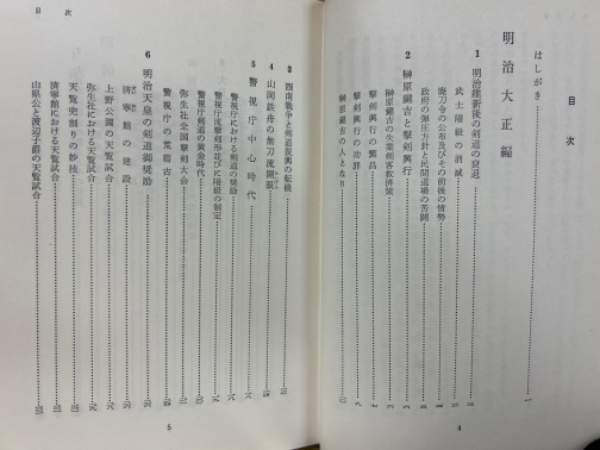 目次
はしがき
一
明治大正編
1 明治維新後の剣道の衰退
武士階級の消滅
廃刀令の公布及びその前後の情勢
政府の弾圧方針と民間道場の苦闘
2 榊原鍵吉と撃剣興行
榊原鍵吉の失業剣客救済策
撃剣興行の繁昌
撃剣興行の功罪
榊原鍵吉の人となり
4
目次
3 西南戦争と剣道復興の転機
4 山岡鉄舟の無刀流開眼
5 警視庁中心時代
警視庁における剣道の奨励
警視庁流撃剣形並びに階級の制定
警視庁剣道の黄金時代
弥生社全国撃剣大会
警視庁の荒稽古
6 明治天皇の剣道御奨励
済寧館の建設
上野公園の天覧試合
弥生社における天覧試合
天覧兜割りの妙技
済寧館における天覧試合
山県公と渡辺子爵の天覧試合
5